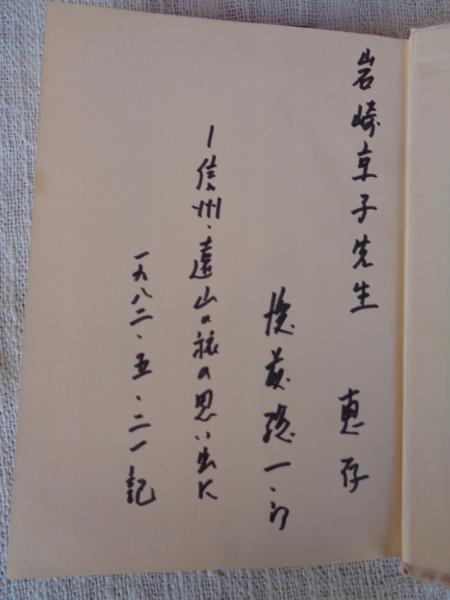 岩崎京子先生 恵存
後藤総一郎
ー信州・遠山の旅の思い出に
一九八二・五・二一記